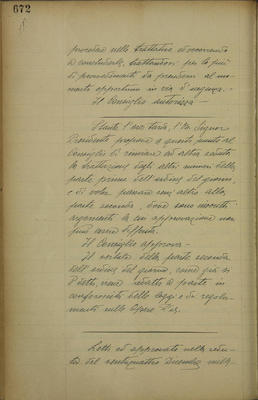 672
procedere nelle trattative occorrendo
a concluderle, trattandosi per lo più
di provvedimenti da prendersi al mo-
mento opportuno in via d'urgenza. -
Il Consiglio autorizza -
Stante l'ora tarda, l'On. Signor
Presidente propone a questo punto al
Consiglio di rinviare ad altra seduta
la trattazione degli altri numeri della
parte prima dell'ordine del giorno,
e di voler passare con altro alla
parte seconda, dove sono
argomenti la cui approvazione non
può essere differita.
Il Consiglio approva -
Il verbale della parte seconda
dell'ordine del giorno, come già si
è detto, viene redatto a parte in
conformità della legge e di regola-
mento sulle Opere Pie.
Letto ed approvato nella sedu-
ta del ventiquattro Dicembre mille-